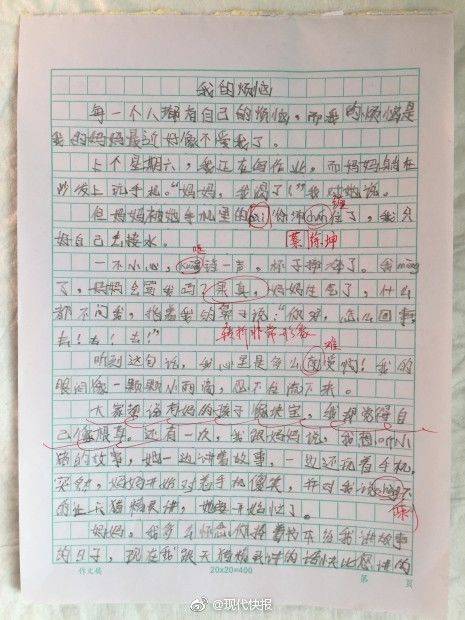 我的烦恼
每一个人都有自己的烦恼,而我的烦恼是
我的妈妈最近好像不爱我了。
上个星期六,我正在写作业,而妈妈躺在
沙发上玩手机。"妈妈,我渴了!"我对她说。
但妈妈被她手机里的 你 住了,我只
缠
好自己去接水。
蔡 坤
哐
一不小心, 一声,杯子摔碎了。我
了,妈妈会骂我吗?果真,妈妈生气了,什么
都不问我,指着我的鼻子说:"你呀,怎么回事,
去!去!去!"
转折非常形象
难
听到这句话,我心里是多么 受啊!我的
眼泪像一颗颗小雨滴,忍不住流下来。
大家都说有妈的孩子像块宝,我却觉得自
己像根草。还有一次,我跟妈妈说,我想听小
猪的故事,她一边讲着故事,一边还看手机,
突然,妈妈开始对着手机傻笑,并对我说
的让天猫精灵讲,她
妈妈,我多么怀念你捧着书本给我讲故事
的日子,现在我跟天猫精灵讲的话快比您讲的
作文稿
20×20=400
第 页
@现代快报